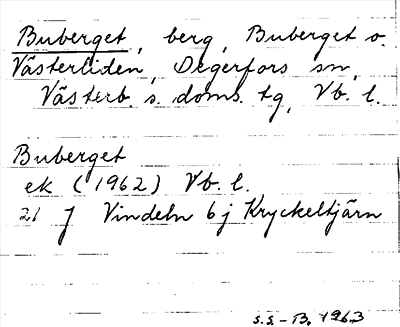 Buberget, berg, Buberget o.
Västerliden, Degerfors sn,
Västerb. s. doms. tg, Vb. l.
Buberget
ek (1962) Vb. l.
21 J Vindeln 6 j Kryckeltjärn
S.S. - B. 1963